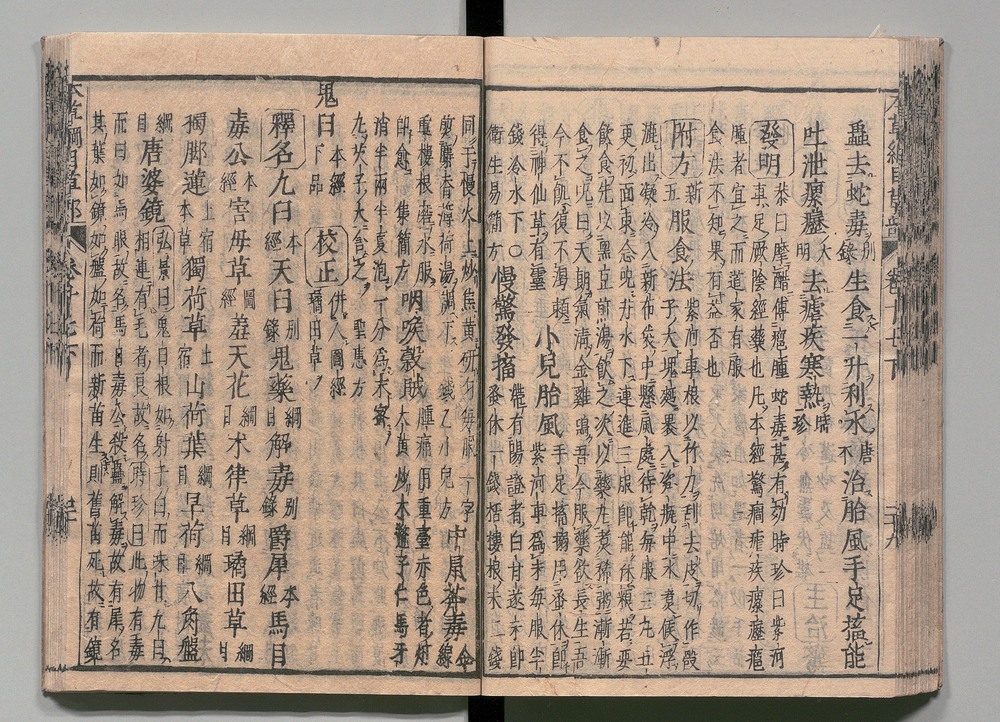 蟲去蛇毒別錄生食一升利水唐本治胎風手足搐能
吐泄瘰癧大明去瘧疾寒熱時珍
發明恭曰摩醋傅癰腫蛇毒甚有效時珍曰紫河
車足厥陰經藥也凡本經驚癇瘧疾瘰癧癰
腫者宜之而道家有服
食法不知果有益否也
附方新五服食法紫河車根以竹刀刮去皮切作骰
子大塊麪裹入瓷瓶中水煮候浮
漉出凝冷入新布袋中懸風處待乾每服三丸五
更初面東念呪井水下連進三服即能休糧若要
飲食先以黑豆煎湯飲之次以藥丸煮稀粥漸漸
食之呪曰天朗氣清金雞鳴吾今服藥欲長生吾
今不飢復不渴賴
得神仙草有靈小兒胎風手足搐搦用蚤休即
紫河車爲末每服半
錢冷水下○
衛生易簡方慢驚發搐帶有陽證者白甘遂末即
蚤休一錢栝樓根末二錢
同于慢火上炒焦黃研勻每服一字
煎麝香薄荷湯調下錢乙小兒方中鼠莽毒金線
重樓根磨水服
即愈集簡方咽喉穀賊腫痛用重臺赤色者川
大黃炒木鼈子仁馬牙
消半兩半夏泡一分爲末蜜
丸芡子大含之聖惠方
鬼臼本經下品校正併入圖經璚田草
釋名九臼本經天臼別錄鬼藥綱目解毒別錄爵犀本經馬目
毒公本經害母草圖經羞天花綱目朮律草綱目璚田草綱目
獨脚蓮土宿本草獨荷草土宿山荷葉綱目旱荷綱目八角盤
綱目唐婆鏡弘景曰鬼臼根如射干白而味甘九臼
相連有毛者良故名時珍曰此物有毒
而臼如馬眼故名馬目毒公殺蠱解毒故有犀名
其葉如鏡如盤如荷而新苗生則舊苗死故有鏡